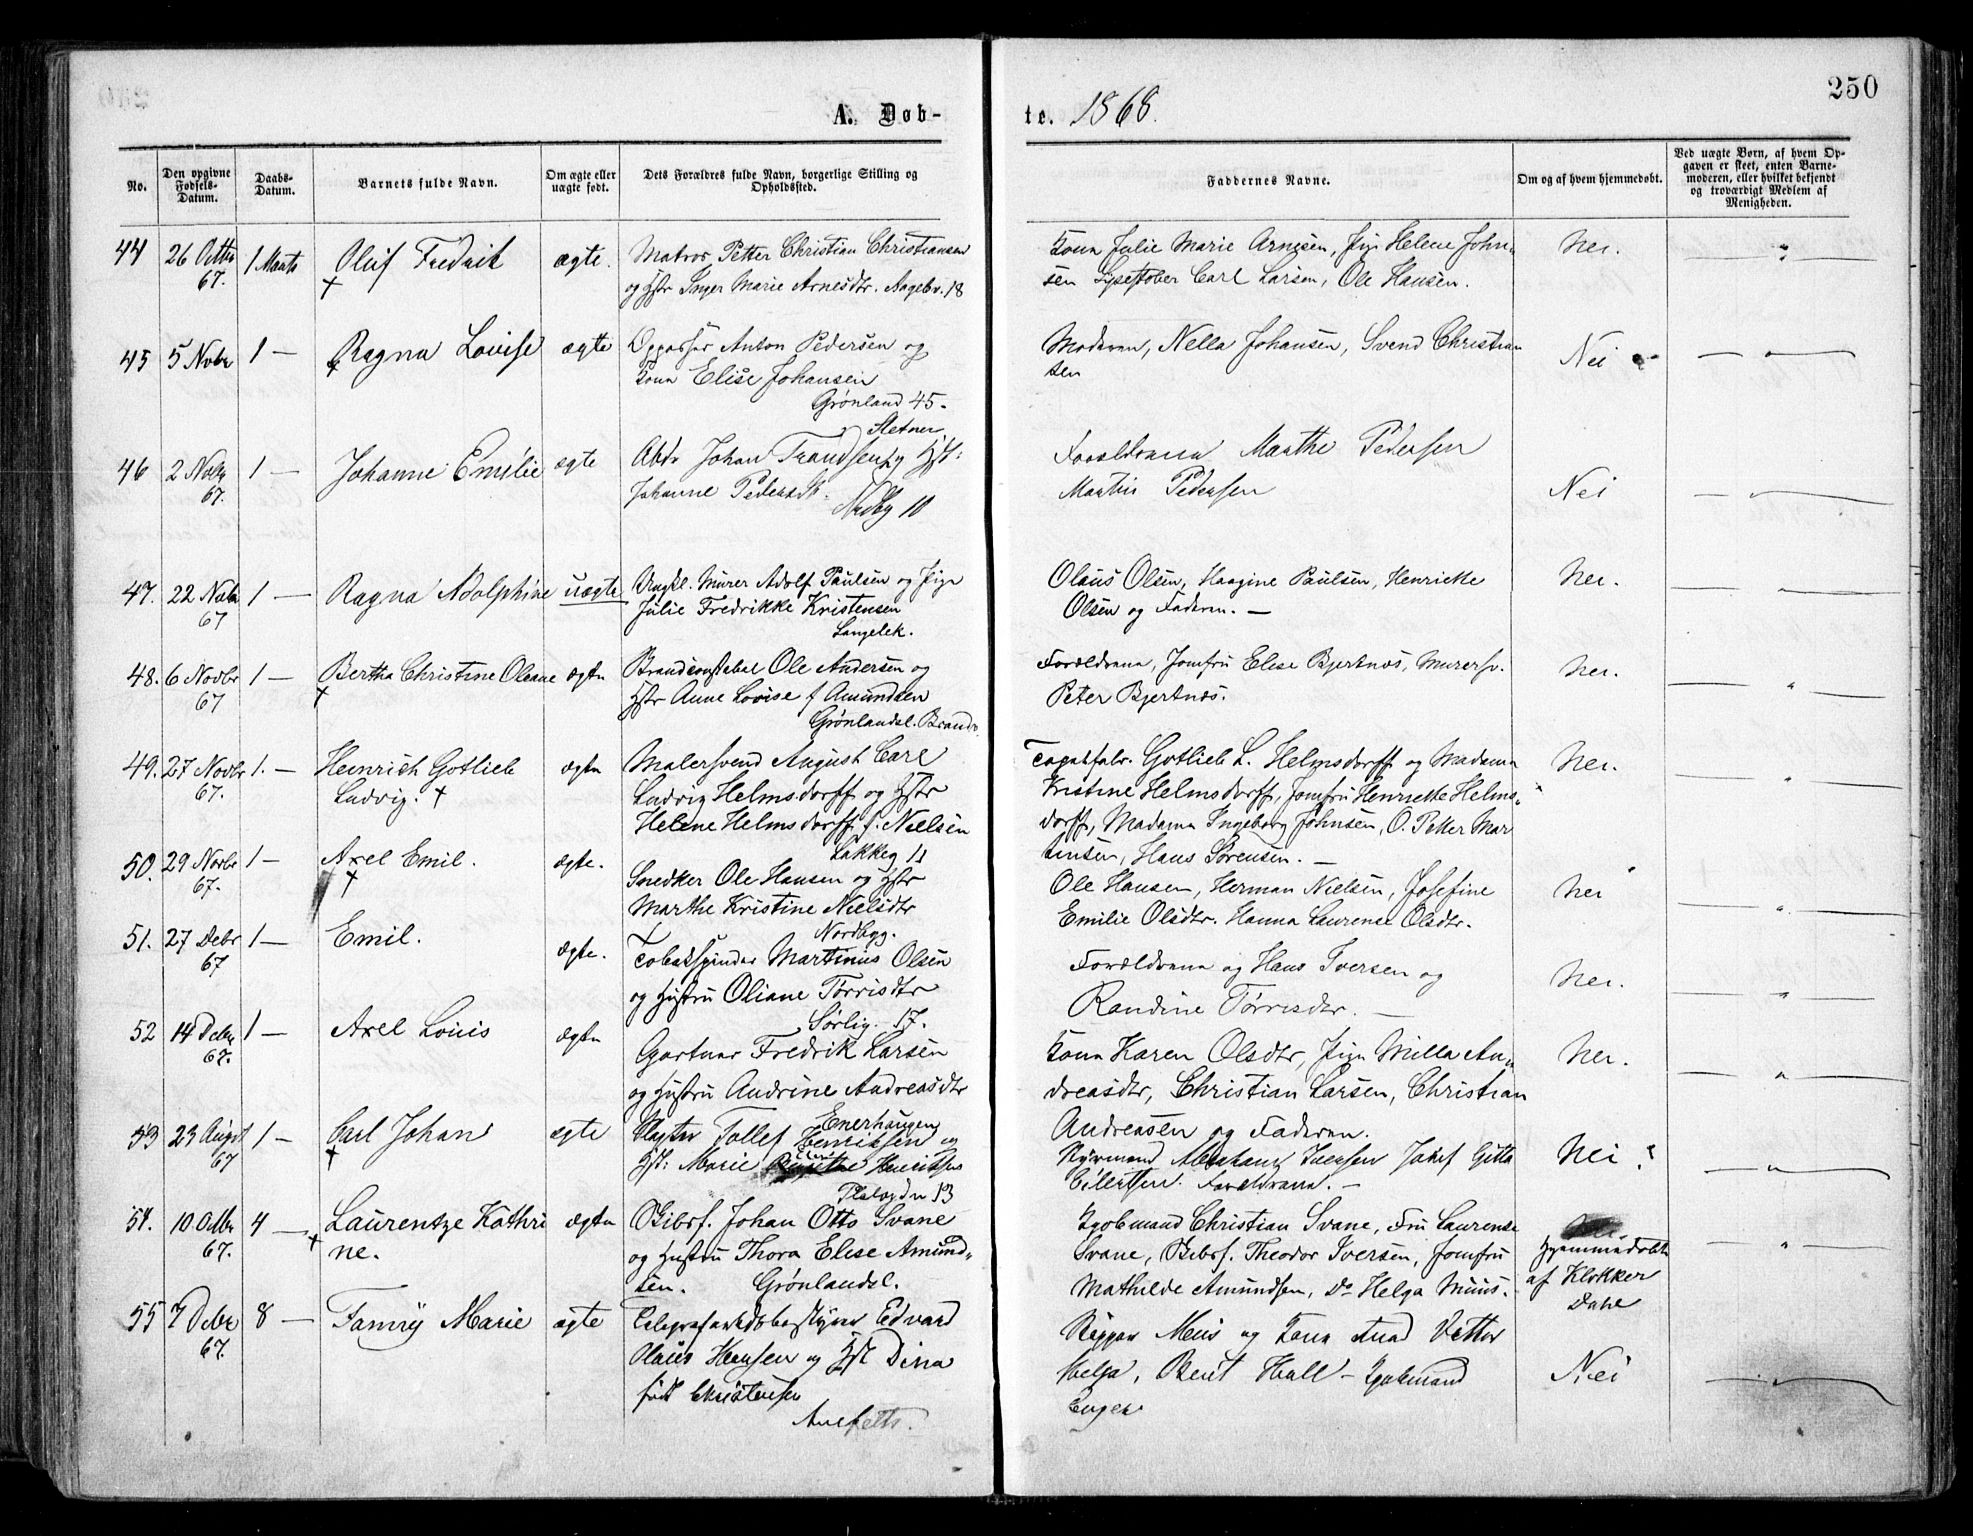 250
A. Døb-
te. 1868.
No.
Den opgivne Fødsels-Datum.
Daabs-Datum.
Barnets fulde Navn.
Om ægte eller uægte født.
Dets Forældres fulde Navn, borgerlige Stilling og Opholdssted.
Faddernes Navne.
Om og af hvem hjemmedøbt.
Ved uægte Børn, af hvem Op-
gaven er skeet, enten Barne-
moderen, eller hvilket bekjendt
og troværdigt Medlem af
Menigheden.
44 26 Octbr 67. 1 Marts Oluf Fredrik ægte.
Matros Petter Christian Christiansen
og Hstr Inger Marie Arnesdtr. Aagebv. 18
Kona Julie Marie Arnesen, Pige Helene John-
sen Lysestøber Carl Larsen, Ole Hansen.
Nei.
45 5 Novbr 1 — Ragna Lovise ægte
Oppasser Anton Pedersen og
Kona Elise Johansen
Grønland 45.
Madaman, Nella Johansen, Svend Christian
sen
Nei
46 2 Novbr 67. 1 — Johanne Emilie ægte
Sletner
Arbdr Johan Frandsen og Hst:
Johanne Pedersdtr.
Nordby 10
Forældrene Marthe Pedersen
Martin Pedersen
Nei
47. 22 Novbr 67 1 — Ragna Adolphine uægte
Ungkl. Murer Adolf Paulsen og Pige
Julie Fredrikke Kristensen
Langelek.
Olaus Olsen, Haagine Paulsen, Henriette
Olsen og Faderen. —
Nei.
48. 6 Novbr 67 1 — Bertha Christine Oleane ægte
Brandconstabel Ole Andersen og
Hstr Anne Lovise f Amundsen
Grønlandsl. Brandv.
Forældrene, Jomfru Elise Bjertnæs, Murersv.
Peter Bjertnæs.
Nei.
49. 27 Novbr 67. 1. — Heinrich Gotlieb
Ludvig. ægte
Malersvend August Carl
Ludvig Helmsdorff og Hstr
Helene Helmsdorff f. Nielsen
Lakkeg 11
Tapetfabr. Gotlieb L. Helmsdorff og Madame
Kristine Helmsdorff, Jomfru Henriette Helms-
dorff, Madame Ingeborg Johnsen, O. Petter Mar
tinsen, Hans Sørensen. —
Nei.
50. 29 Novbr 67. 1 — Axel Emil. ægte.
Snedker Ole Hansen og Hstr
Marthe Kristine Nielsdtr
Nordbyg.
Ole Hansen, Herman Nielsen, Josefine
Emilie Olsdtr. Hanna Laurense Olsdtr.
Nei
51. 27 Debr 67 1 — Emil. ægte.
Tobakspinder Martinius Olsen
og Hustru Oliane Tørrisdtr
Sørlig. 17.
Forældrene og Hans Iversen og
Randine Tørrisdtr. —
Nei.
52 14 Debr 67. 1 — Axel Louis ægte
Gartner Fredrik Larsen
og Hustru Andrine Andreasdtr
Enerhaugen
Kona Karen Olsdtr, Pige Milla An-
dreasdtr, Christian Larsen, Christian
Andreasen og Faderen.
Nei.
53 23 Augst 67 1 — Carl Johan ægte
Slagter Tollef Henriksen og
Hst: Marie Henriksen
13
Abraham Iversen Josef Gitta
Eilertsen. Forældrene. —
Nei
54. 10 Octbr 67. 4 — Laurentze Kathri
ne. ægte
Johan Otto Svane
og Hustru Thora Elise Amund-
sen. Grønlandsl.
Kjøbmand Christian Svane, Fru Laurense
Svane, Theodor Iversen, Jomfru
Mathilde Amundsen, Do Helga Muus.
Hjemmedøbt
af Klokker
Dahl
55 7 Debr 67. 8 — Fanny Marie ægte
Telegrafarbdbestyrer Edvard
Olaus Hansen og Hst Dina
født Christensen
Skipper Meis og Kona
Helga, Berit Hall – Kjøbmand
Enger
Nei